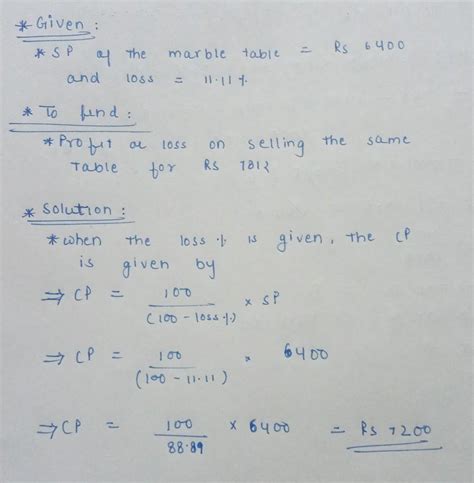 * Given :
* SP of the marble table = Rs 6400
and loss = 11.11 %
* To find :
* Profit or loss on selling the same
Table for Rs 7812
* Solution :
* When the loss % is given, the CP
is given by
⇒ CP = 100 / (100 - loss %) × SP
⇒ CP = 100 / (100 - 11.11) × 6400
⇒ CP = 100 / 88.89 × 6400 = Rs 7200